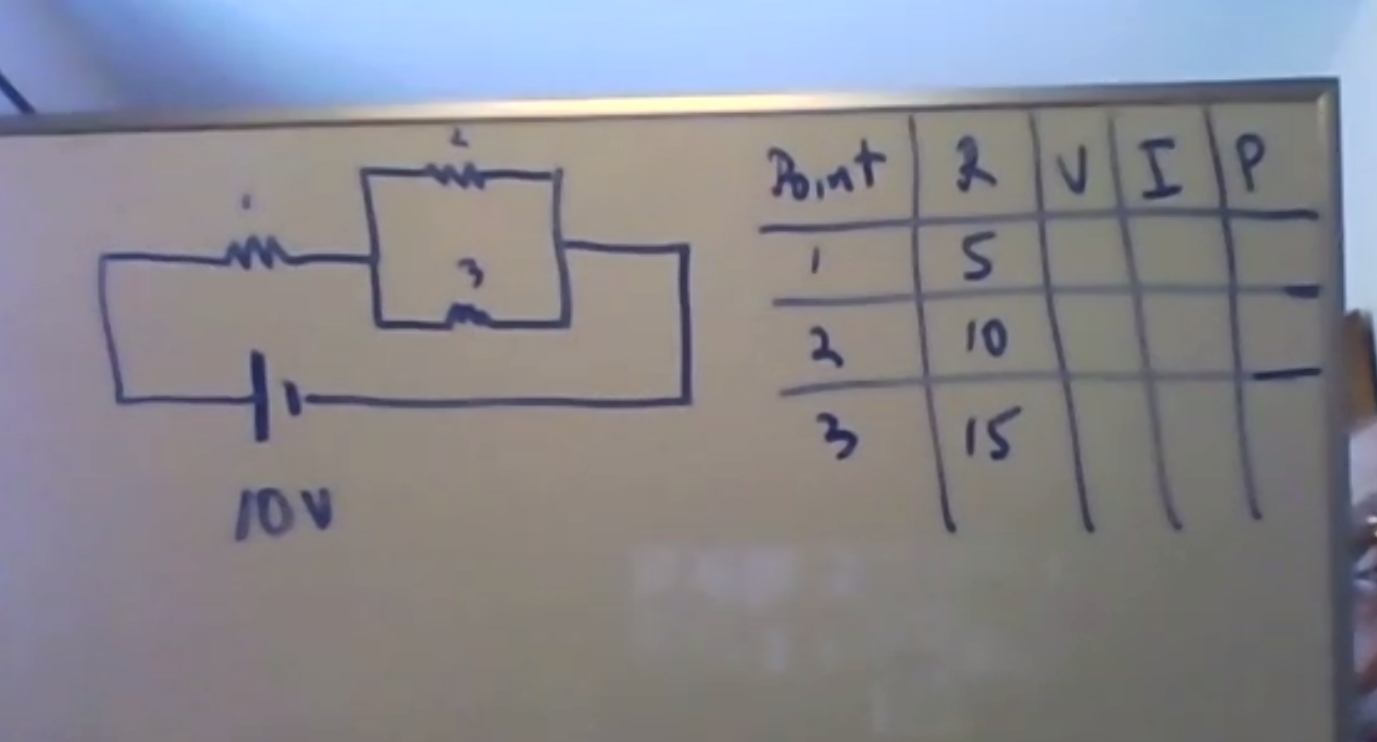 1
2
3
10V
Point R V I P
1 5
2 10
3 15